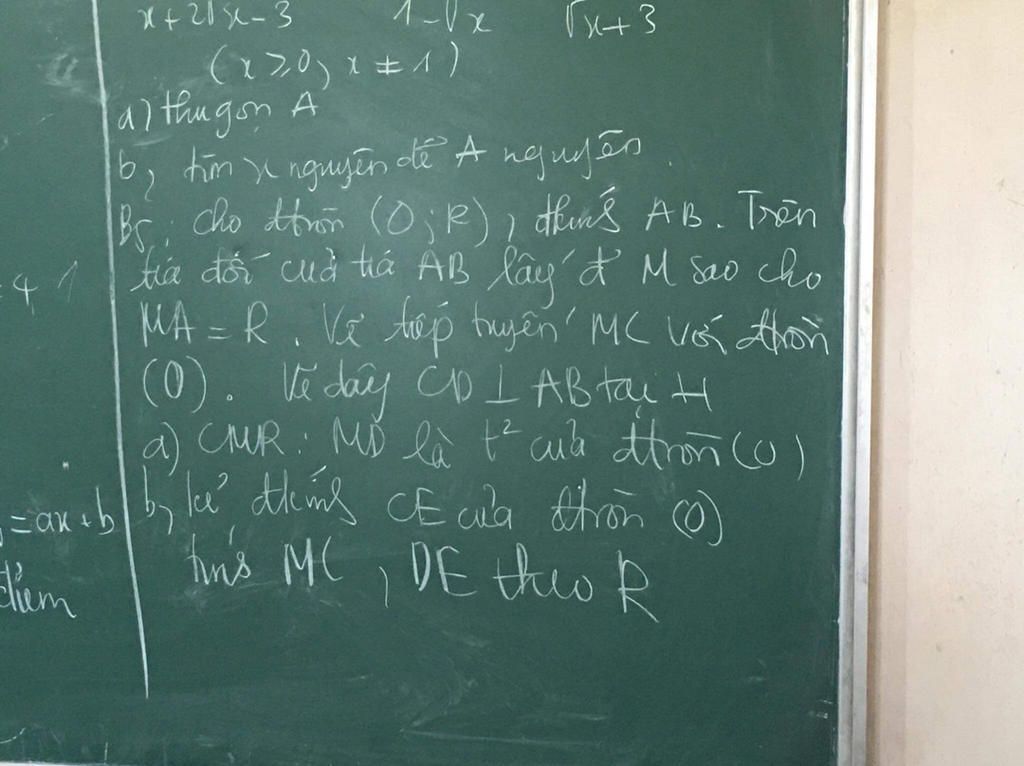 x+2√x-3 1-√x √x+3
(x≥0, x≠1)
a) thu gọn A
b, tìm x nguyên để A nguyên.
B5: cho đtròn (O;R), đkính AB. Trên
= 4 1
tiá đối của tiá AB lấy đ' M sao cho
MA = R. Vẽ tiếp tuyến MC với đtròn
(O). Vẽ dây CD ⊥ AB tại H
a) CMR: MD là t² của đtròn (O)
b, kẻ đkính CE của đtròn (O)
= ax + b
tính MC, DE theo R
điểm